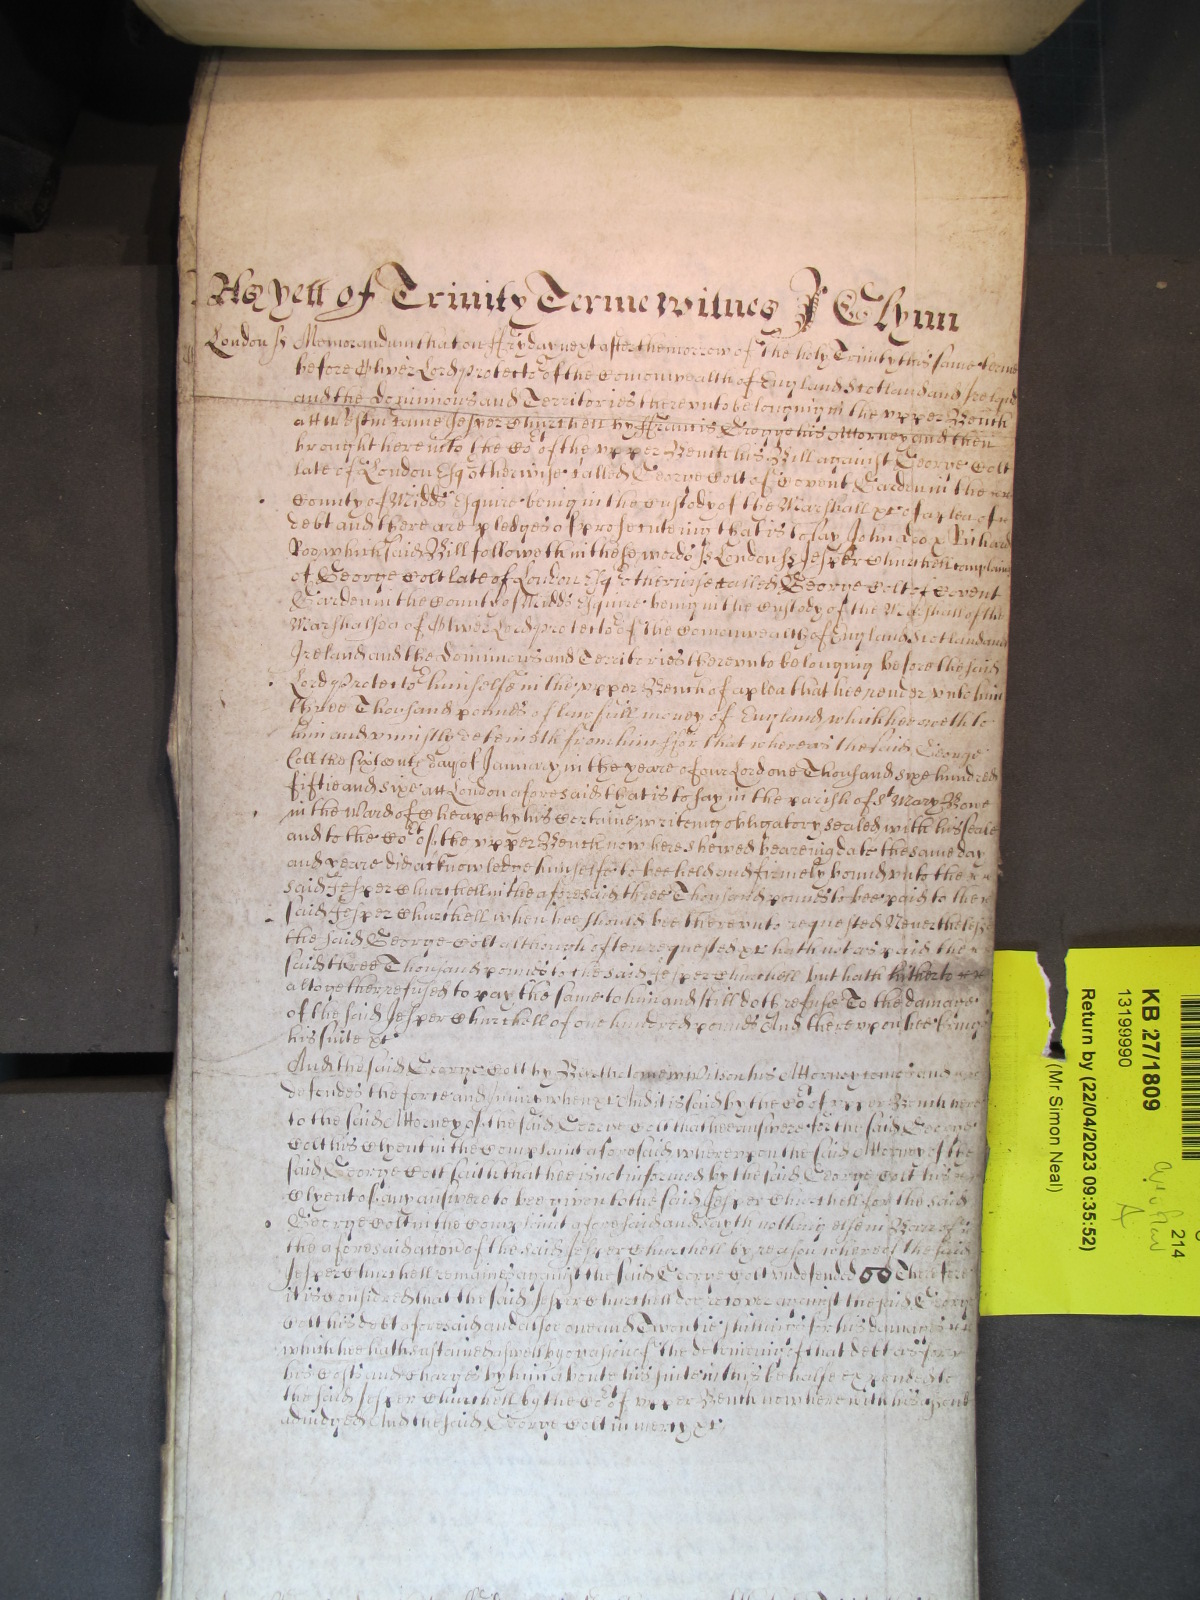 As yett of Trinity Terme witnes J Glynn
London ss Memorandum that on Fryday next after the morrow of the holy Trinity this same terme
before Oliver Lord Protector of the Comonwealth of England Scotland and Ireland
and the Dominions and Territories thereunto belonging in the upper Bench
att Westm came Jesper Churchell by Francis his Attorney and then
brought here into the Cort of the upper Bench his Bill against George Colt
late of London Esqr otherwise called George Colt of Covent Garden in the
County of Midds Esquire being in the Custody of the Marshall &c of a plea of
debt and there are pledges of prosecuteing that is to say John Doo & Richard
Roo which said Bill followeth in these words ss London ss Jesper Churchell complaines
of George Colt late of London Esqr otherwise called George Colt of Covent
Garden in the County of Midds Esquire being in the Custody of the Marshall of the
Marshalsea of Oliver Lord Protector of the Comonwealth of England Scotland and
Ireland and the Dominions and Territories thereunto belonging before the said
Lord Protector himselfe in the upper Bench of a plea that hee render unto him
three Thousand pounds of lawfull money of England which hee oweth to
him and uniustly deteineth from him ffor that whereas the said George
Colt the sixteenth day of January in the yeare of our Lord one Thousand sixe hundred
fiftie and sixe att London aforesaid that is to say in the parish of St Mary Bowe
in the Ward of Cheape by his certaine writeing obligatory sealed with his seale
and to the Cort of the upper Bench now here shewed beareing date the same day
and yeare did acknowledge himselfe to bee held and firmely bound unto the
said Jesper Churchell in the aforesaid three Thousand pounds to bee paid to the
said Jesper Churchell when hee should bee thereunto requested Neverthelesse
the said George Colt although often requested &c hath not as paid the
said three Thousand pounds to the said Jesper Churchell but hath hitherto
altogether refused to pay the same to him and still doth refuse To the damage
of the said Jesper Churchell of one hundred pounds And thereupon hee brings
his suite &c
And the said George Colt by Bartholomew Wilson his Attorney comes and
defendes the force and iniury when &c And it is said by the Cort of upper Bench here
to the said Attorney of the said George Colt that hee answere for the said George
Colt his Clyent in the Complaint aforesaid whereupon the said Attorney of the
said George Colt saith that hee is not informed by the said George Colt his
Clyent of any answere to bee given to the said Jesper Churchell for the said
George Colt in the Complaint aforesaid and sayth nothing else in Barr of
the aforesaid accon of the said Jesper Churchell by reason whereof the said
Jesper Churchell remaines against the said George Colt undefended Therefore
it is considered that the said Jesper Churchell doe recover against the said George
Colt his debt aforesaid and alsoe one and Twentie shillings for his damages
which hee hath susteined aswell by occasion of the deteineing of that debt as for
his costs and charges by him aboute his suite in this behalfe expended to
the said Jesper Churchell by the Cort of upper Bench now here with his assent
adiudged And the said George Colt in mercy &c
KB 27/1809
13199990
Return by (22/04/2023 09:35:52)
(Mr Simon Neal)
214